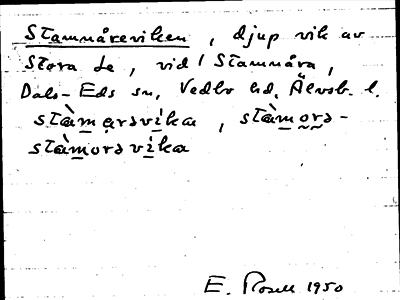 Stamnåreviken, djup vik av
Stora Le, vid Stamnåra,
Dals-Eds sn, Vedbo hd, Älvsb. l.
stàmarsvika, stàmorə-
stàmorəvika
E. Rosell 1950